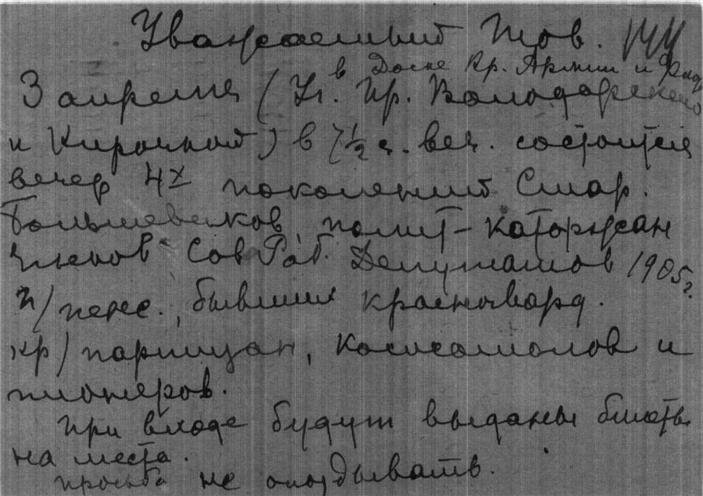 Уважаемый Тов.
в Доме Кр. Армии и Фло
3 апреля (Уг. пр. Володарского
и Кирочной) в 7½ ч. веч. состоится
вечер 4х поколений Стар.
Большевиков, полит-каторжан
членов Сов Раб. Депутатов 1905 г.
п/пенс., бывших красногвард.
кр/партизан, комсомолов и
пионеров.
При входе будут выданы билеты
на места.
Просьба не опаздывать.